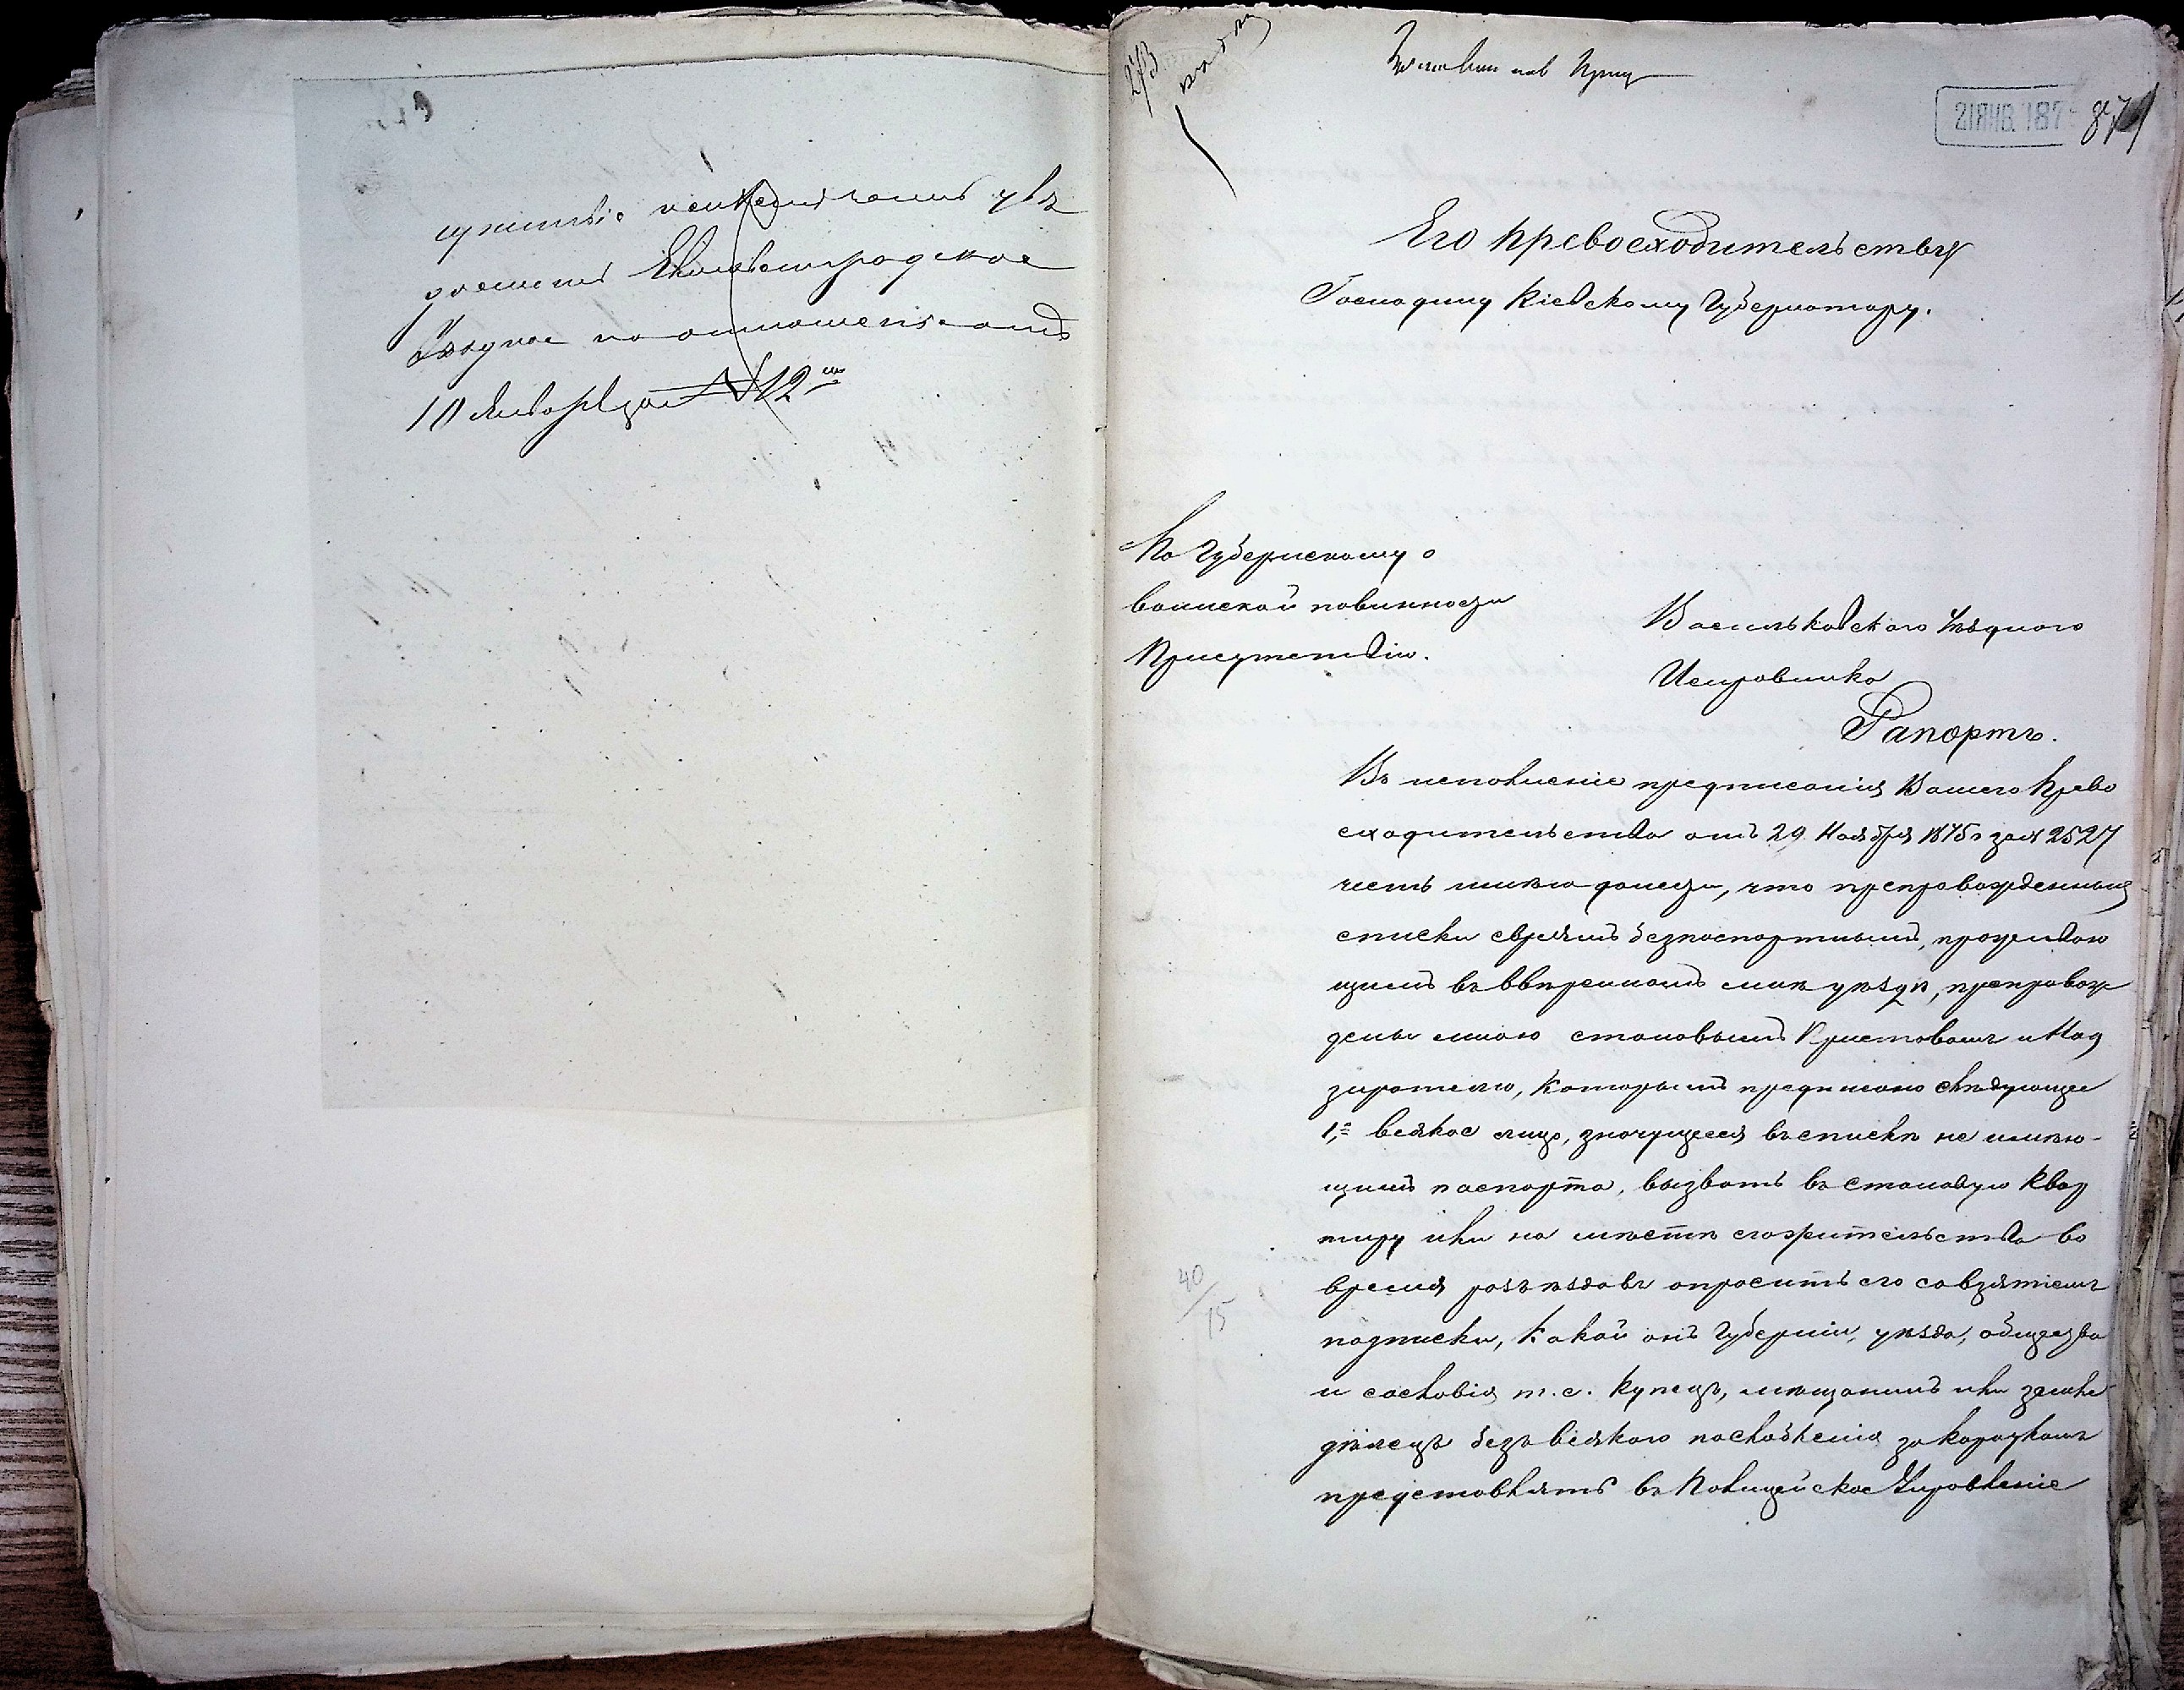 Елисаветградское
Уѣздное по отношенію отъ
10 Января за № 12
273
21 ЯНВ. 187
87
Его Превосходительству
Господину Кіевскому Губернатору.
По Губернскому о
воинской повинности
Присутствію.
Васильковскаго Уѣзднаго
Исправника
Рапортъ.
Въ исполненіе предписанія Вашего Прево
сходительства отъ 29 Ноября 1875 г за № 2527
честь имѣю донести, что препровожденныя
списки евреямъ безпаспортнымъ, проживаю
щимъ въ ввѣренномъ мнѣ уѣздѣ, препровож
дены мною становымъ Приставамъ и Над
зирателю, которымъ предписано слѣдующее
1, всякое лицо, значущееся въ спискѣ не имѣю-
щимъ паспорта, вызвать въ становую квар
тиру или на мѣстѣ сгожительства во
время разъѣздовъ опросить его со взятіемъ
подписки, какой онъ Губерніи, уѣзда, общества
и сословія т.е. купецъ, мѣщанинъ или земле
дѣлецъ безъ всякаго послабленія за караулом
представлять въ Полицейское Управленіе
40
15